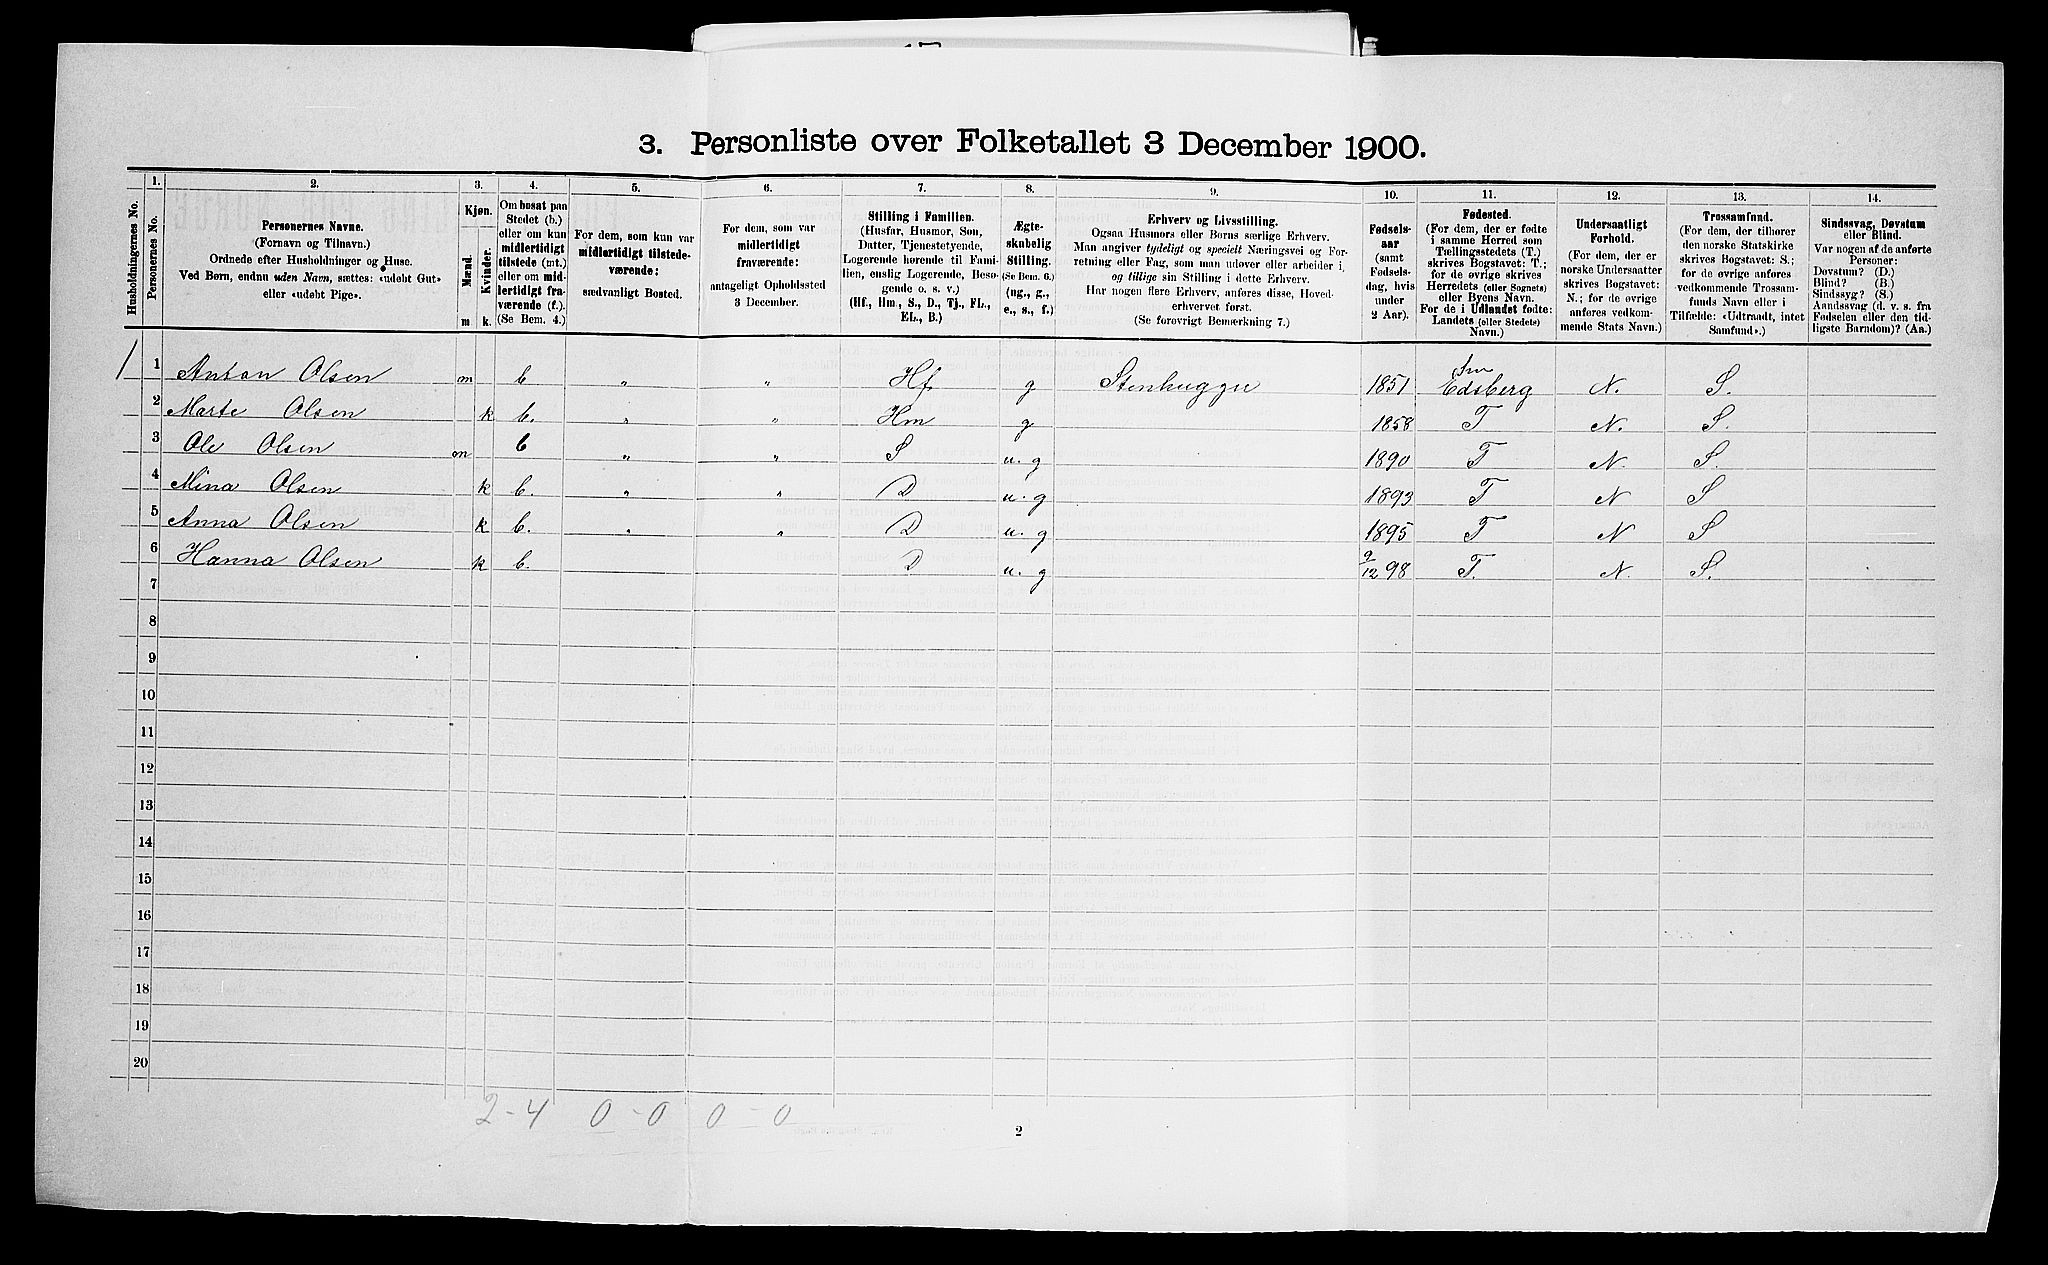 3. Personliste over Folketallet 3 December 1900.
Husholdningernes No.
1. Personernes No.
2.
Personernes Navne.
(Fornavn og Tilnavn.)
Ordnede efter Husholdninger og Huse.
Ved Børn, endnu uden Navn, sættes: «udøbt Gut»
eller «udøbt Pige».
3.
Kjøn.
Mænd. Kvinder.
m k.
4.
Om bosat paa
Stedet (b.)
eller om kun
midlertidigt
tilstede (mt.)
eller om mid-
lertidigt fra-
værende (f.).
(Se Bem. 4.)
5.
For dem, som kun var
midlertidigt tilstede-
værende:
sædvanligt Bosted.
6.
For dem, som var
midlertidigt
fraværende:
antageligt Opholdssted
3 December.
7.
Stilling i Familien.
(Husfar, Husmor, Søn,
Datter, Tjenestetyende,
Logerende hørende til Fami-
lien, enslig Logerende, Besø-
gende o. s. v.)
(Hf., Hm., S., D., Tj., FL.,
EL., B.)
8.
Ægte-
skabelig
Stilling.
(Se Bem. 6.)
(ug., g.,
e., s., f.)
9.
Erhverv og Livsstilling.
Ogsaa Husmors eller Børns særlige Erhverv.
Man angiver tydeligt og specielt Næringsvei og For-
retning eller Fag, som man udøver eller arbeider i,
og tillige sin Stilling i dette Erhverv.
Har nogen flere Erhverv, anføres disse, Hoved-
erhvervet først.
(Se forøvrigt Bemærkning 7.)
10.
Fødsels-
aar
(samt
Fødsels-
dag, hvis
under
2 Aar).
11.
Fødested.
(For dem, der er fødte
i samme Herred som
Tællingsstedets (T.)
skrives Bogstavet: T.;
for de øvrige skrives
Herredets (eller Sognets)
eller Byens Navn.
For de i Udlandet fødte:
Landets (eller Stedets)
Navn.)
12.
Undersaatligt
Forhold.
(For dem, der er
norske Undersaatter
skrives Bogstavet:
N.; for de øvrige
anføres vedkom-
mende Stats Navn.)
13.
Trossamfund.
(For dem, der tilhører
den norske Statskirke
skrives Bogstavet: S.;
for de øvrige anføres
vedkommende Trossam-
funds Navn eller i
Tilfælde: «Udtraadt, intet
Samfund».)
14.
Sindssvag, Døvstum
eller Blind.
Var nogen af de anførte
Personer:
Døvstum? (D.)
Blind? (B.)
Sindssyg? (S.)
Aandssvag (d. v. s. fra
Fødselen eller den tid-
ligste Barndom)? (Aa.)
1 1 Anton Olsen m b " " Hf g Stenhugger 1851 Edsberg N. S.
2 Marte Olsen k b. " " Hm g 1858 T N. S.
3 Ole Olsen m b " " S u. g 1890 T N. S.
4 Mina Olsen k b. " " D u. g 1893 T N S
5 Anna Olsen k b. " " D u. g 1895 T N S
6 Hanna Olsen k b. D u. g 9/12 98 T. N. S.
7
8
9
10
11
12
13
14
15
16
17
18
19
20
2-4 0-0 0-0
2